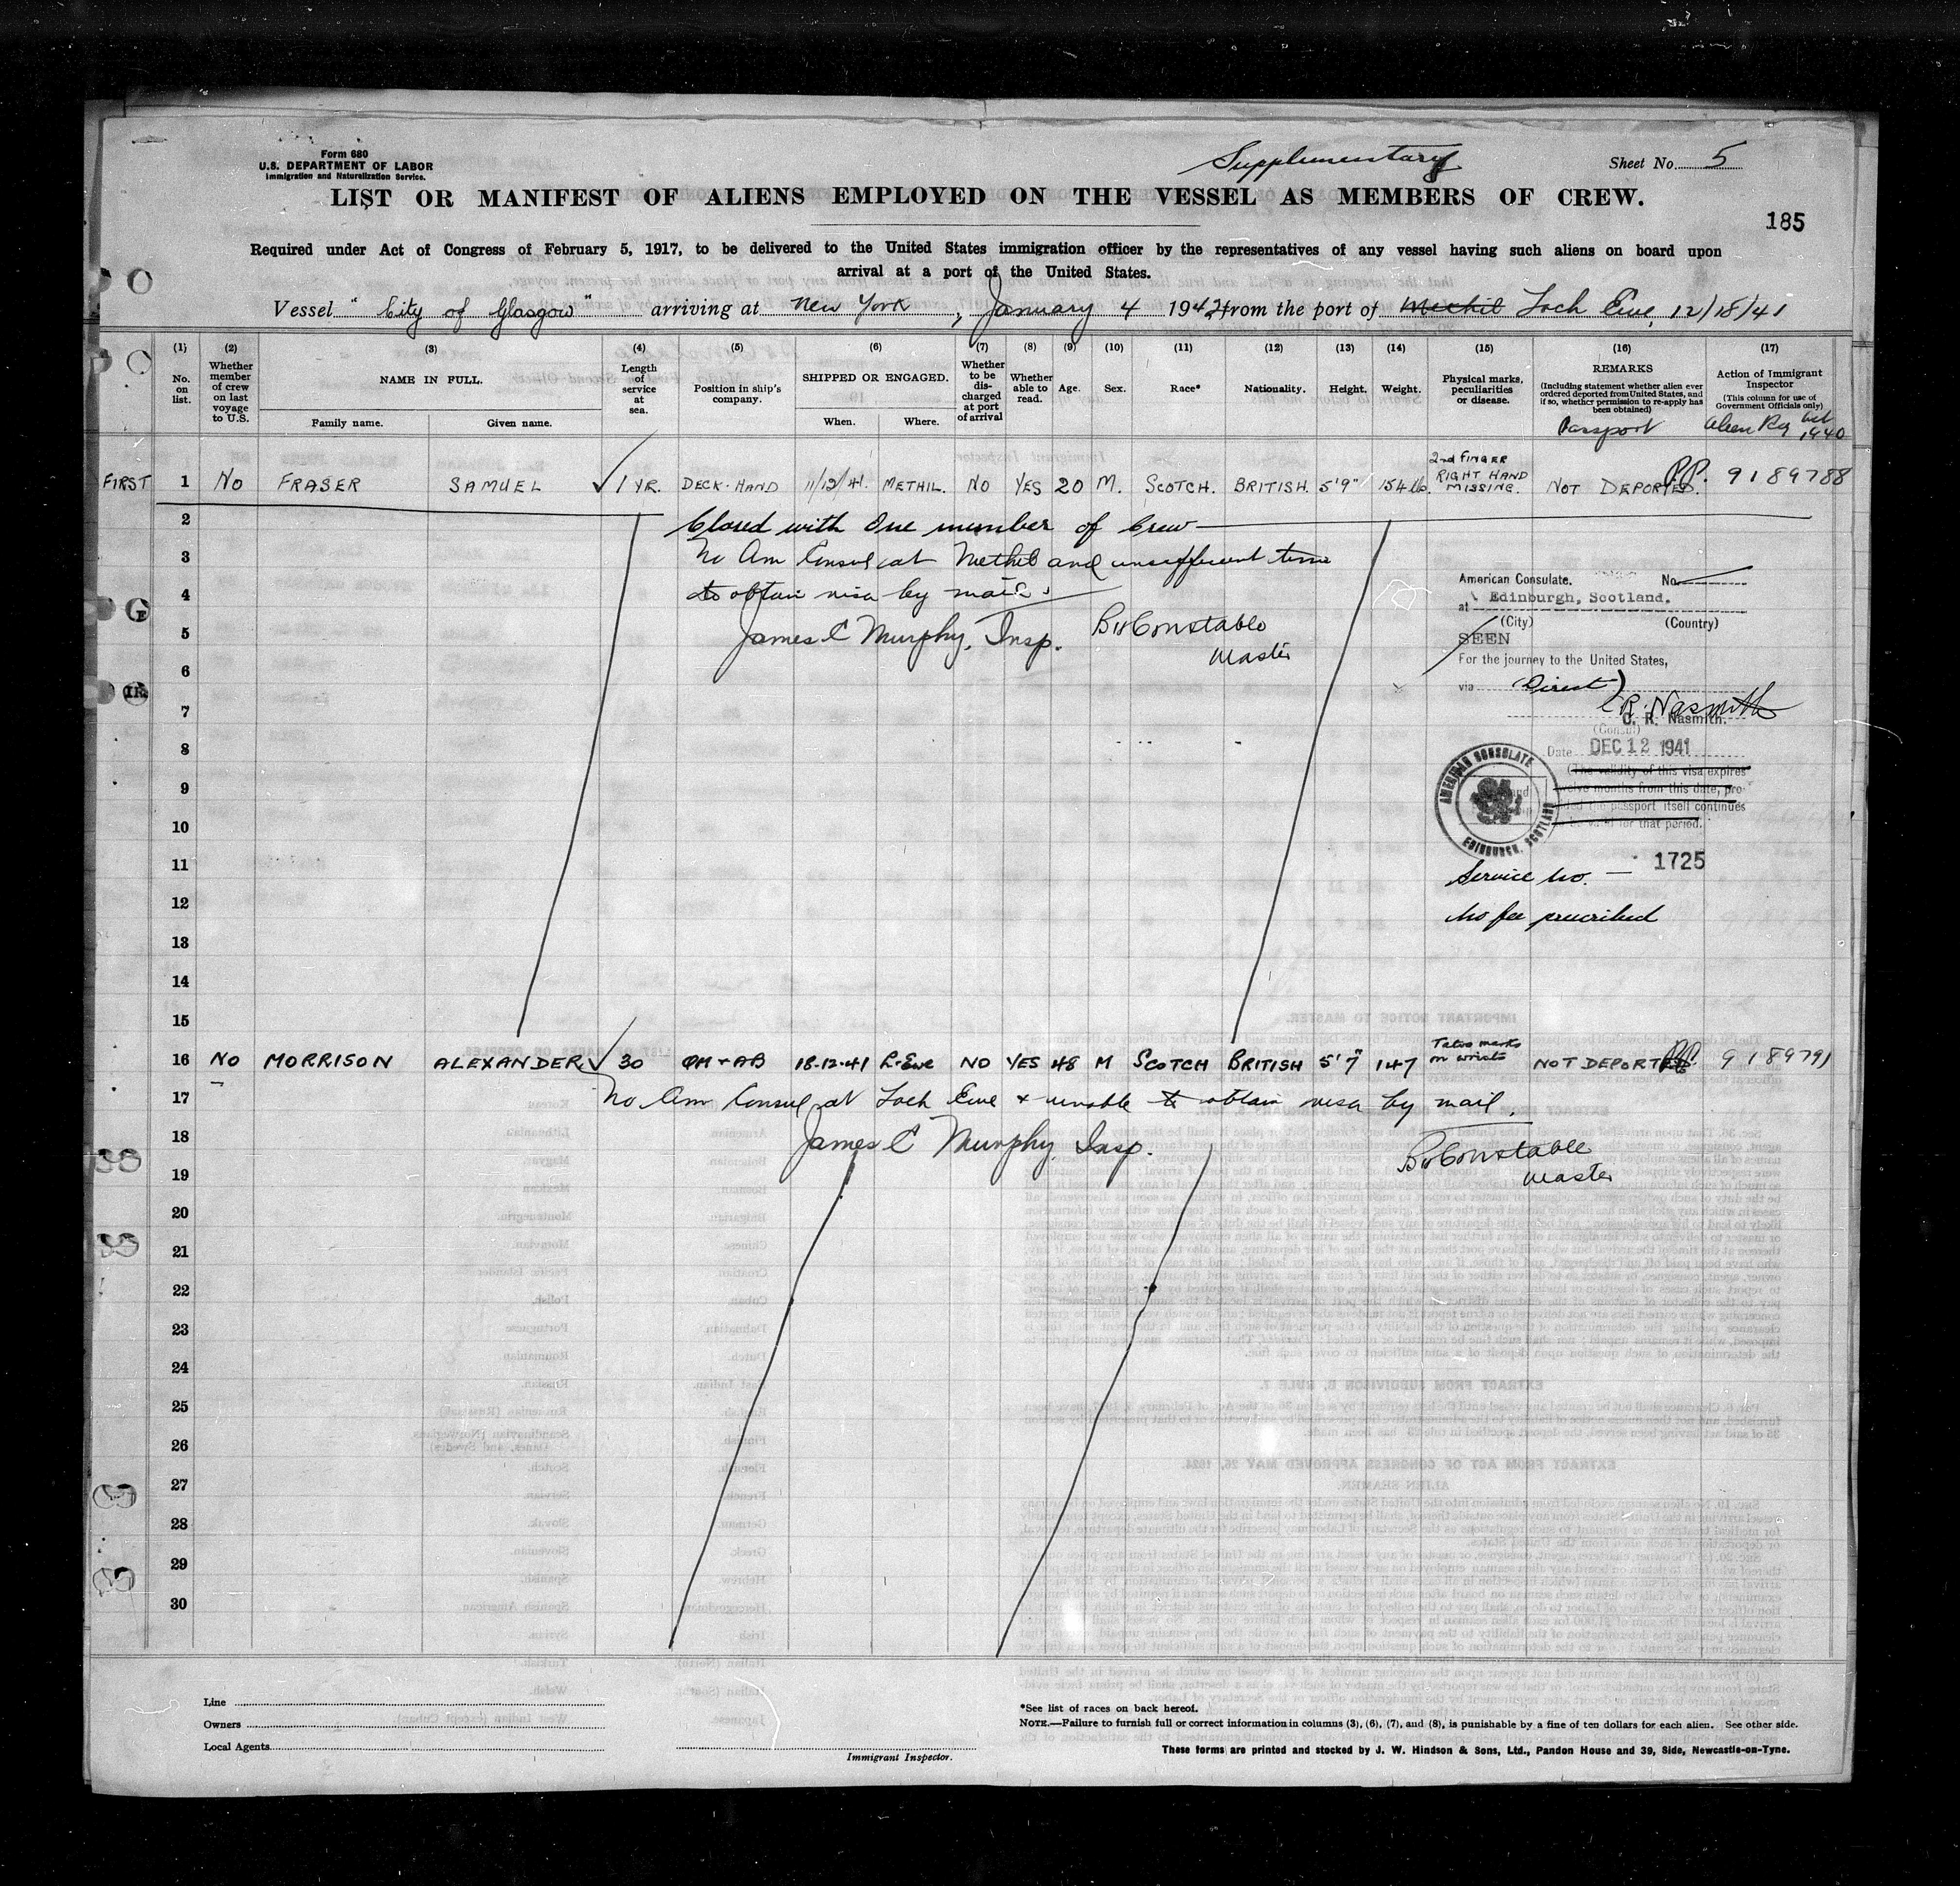 Form 680
U.S. DEPARTMENT OF LABOR
Immigration and Naturalization Service.
Supplementary
Sheet No. 5
LIST OR MANIFEST OF ALIENS EMPLOYED ON THE VESSEL AS MEMBERS OF CREW.
185
Required under Act of Congress of February 5, 1917, to be delivered to the United States immigration officer by the representatives of any vessel having such aliens on board upon
arrival at a port of the United States.
Vessel "City of Glasgow" arriving at New York, January 4 1942 from the port of Methil Loch Ewe, 12/18/41
(1) No. on list.
(2) Whether member of crew on last voyage to U.S.
(3) NAME IN FULL. Family name. Given name.
(4) Length of service at sea.
(5) Position in ship's company.
(6) SHIPPED OR ENGAGED. When. Where.
(7) Whether to be dis-charged at port of arrival
(8) Whether able to read.
(9) Age.
(10) Sex.
(11) Race*
(12) Nationality.
(13) Height.
(14) Weight.
(15) Physical marks, peculiarities or disease.
(16) REMARKS (Including statement whether alien ever ordered deported from United States, and if so, whether permission to re-apply has been obtained) Passport
(17) Action of Immigrant Inspector (This column for use of Government Officials only) Alien Reg Act 1940
FIRST 1 No FRASER SAMUEL ✓ 1 YR. DECK-HAND 11/12/41. METHIL. NO YES 20 M. SCOTCH. BRITISH. 5'9" 154 lb. 2nd FINGER RIGHT HAND MISSING. NOT DEPORTED. P.P. 9189788
2 Closed with One member of Crew
3 No Am Consul at Methil and unsufficient time
4 to obtain visa by mail.
5 James C Murphy, Insp. Constable
6 Master
7
8
9
10
11
12
13
14
15
American Consulate. No.
at Edinburgh, Scotland.
(City) (Country)
SEEN
For the journey to the United States,
via (Direct)
C.R. Nasmith
C. R. Nasmith.
(Consul)
Date DEC 12 1941
(The validity of this visa expires
twelve months from this date, pro-
vided the passport itself continues
to be valid for that period.
AMERICAN CONSULATE EDINBURGH, SCOTLAND
1725
Service No. —
No fee prescribed
16 NO MORRISON ALEXANDER ✓ 30 QM + AB 18.12.41 L. Ewe NO YES 48 M SCOTCH BRITISH 5'7" 147 Tatoo marks on wrists NOT DEPORTED P.P. 9189791
17 No Am Consul at Loch Ewe + unable to obtain visa by mail.
18 James C Murphy Insp.
19 Constable
Master
20
21
22
23
24
25
26
27
28
29
30
Line
Owners
Local Agents
Immigrant Inspector.
*See list of races on back hereof.
NOTE.—Failure to furnish full or correct information in columns (3), (6), (7), and (8), is punishable by a fine of ten dollars for each alien. See other side.
These forms are printed and stocked by J. W. Hindson & Sons, Ltd., Pandon House and 39, Side, Newcastle-on-Tyne.